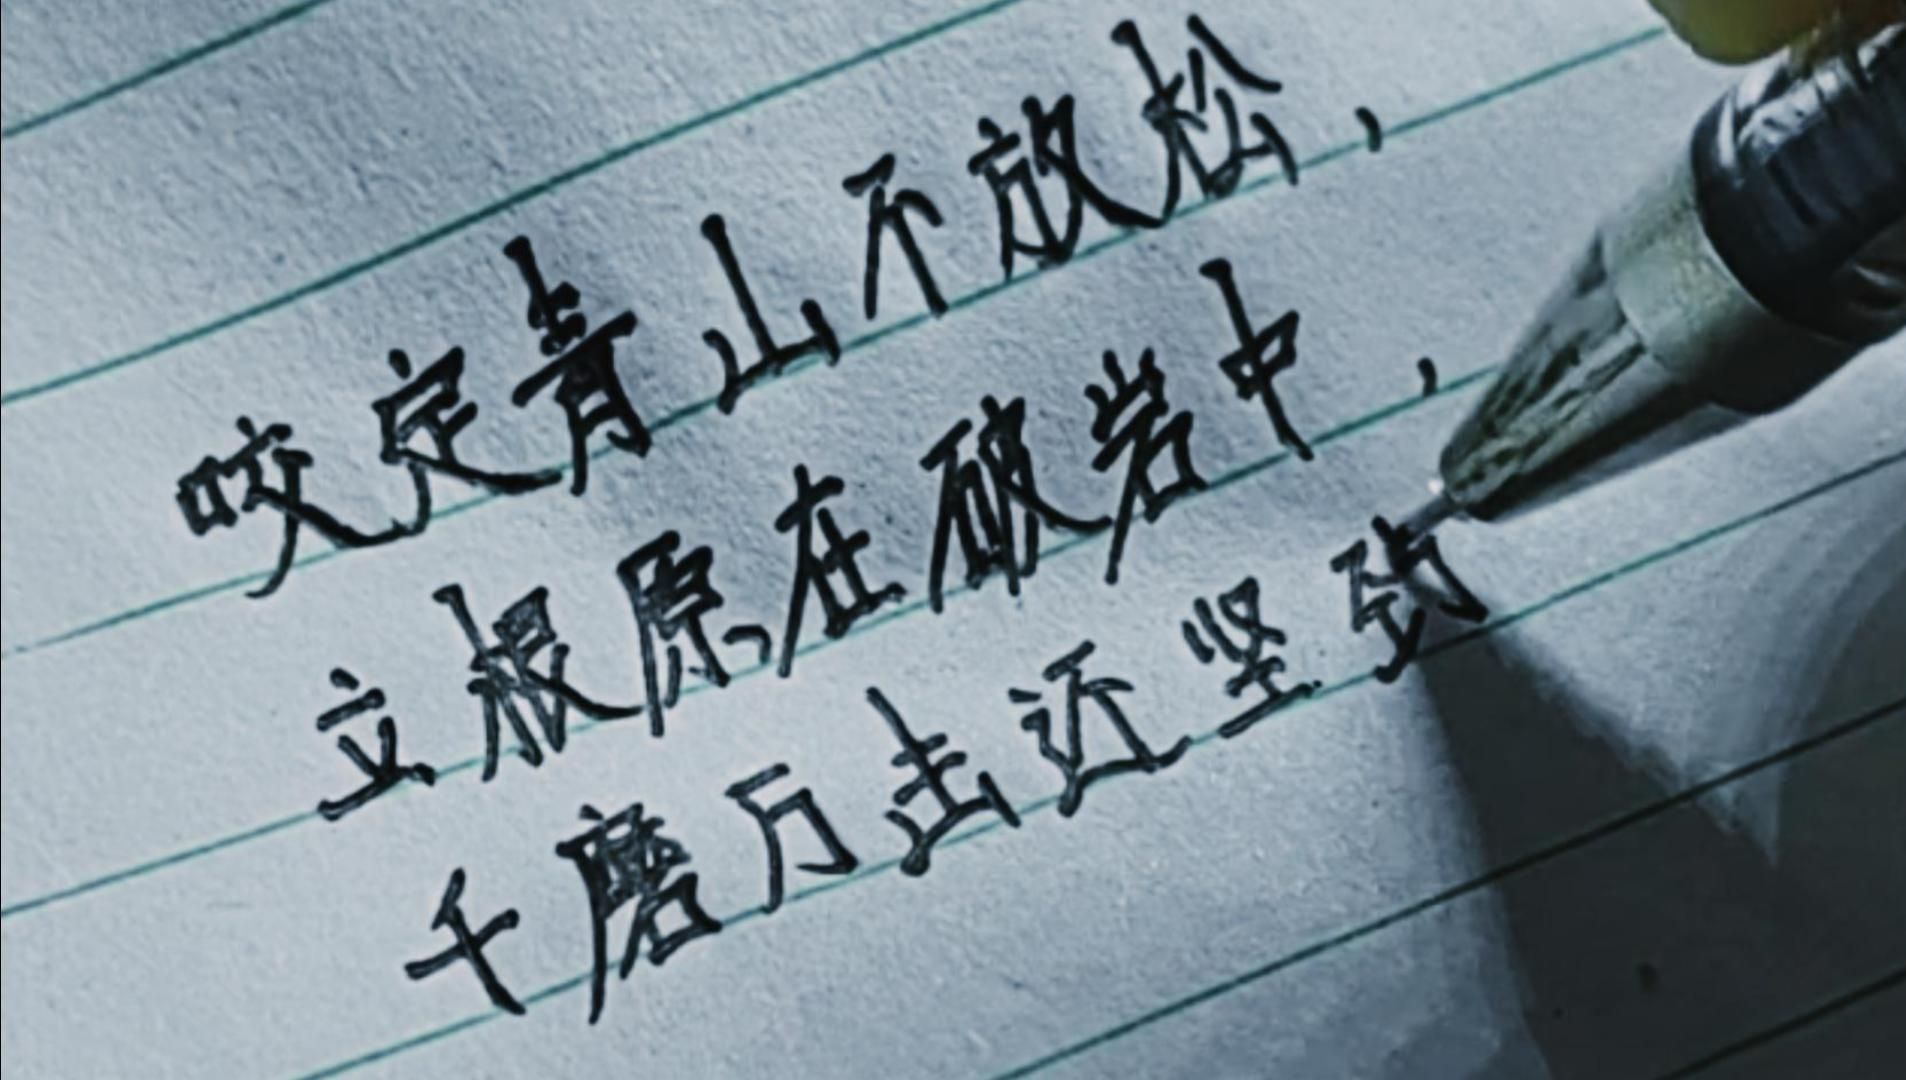 咬定青山不放松，
立根原在破岩中，
千磨万击还坚劲